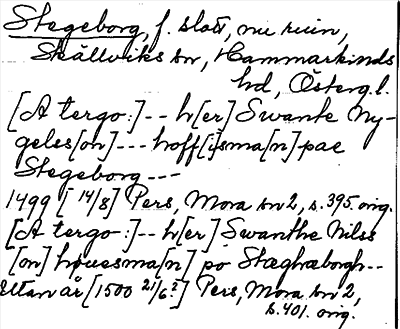 Stegeborg, f. slott, nu ruin,
Skällviks sn, Hammarkinds
hd, Österg.l.
[A tergo:] -- h[er] Swante Ny-
gels[on] --- hoff[i]sma[n] pae
Stegeborg ---
1499 [14/8] Pers, Mora bn 2, s. 395 orig.
[A tergo:] -- h[er] Swanthe Nilss
[on] houesma[n] po Stæghæborgh --
Utan år [1500 21/6?] Pers, Mora bn 2,
s. 401. orig.